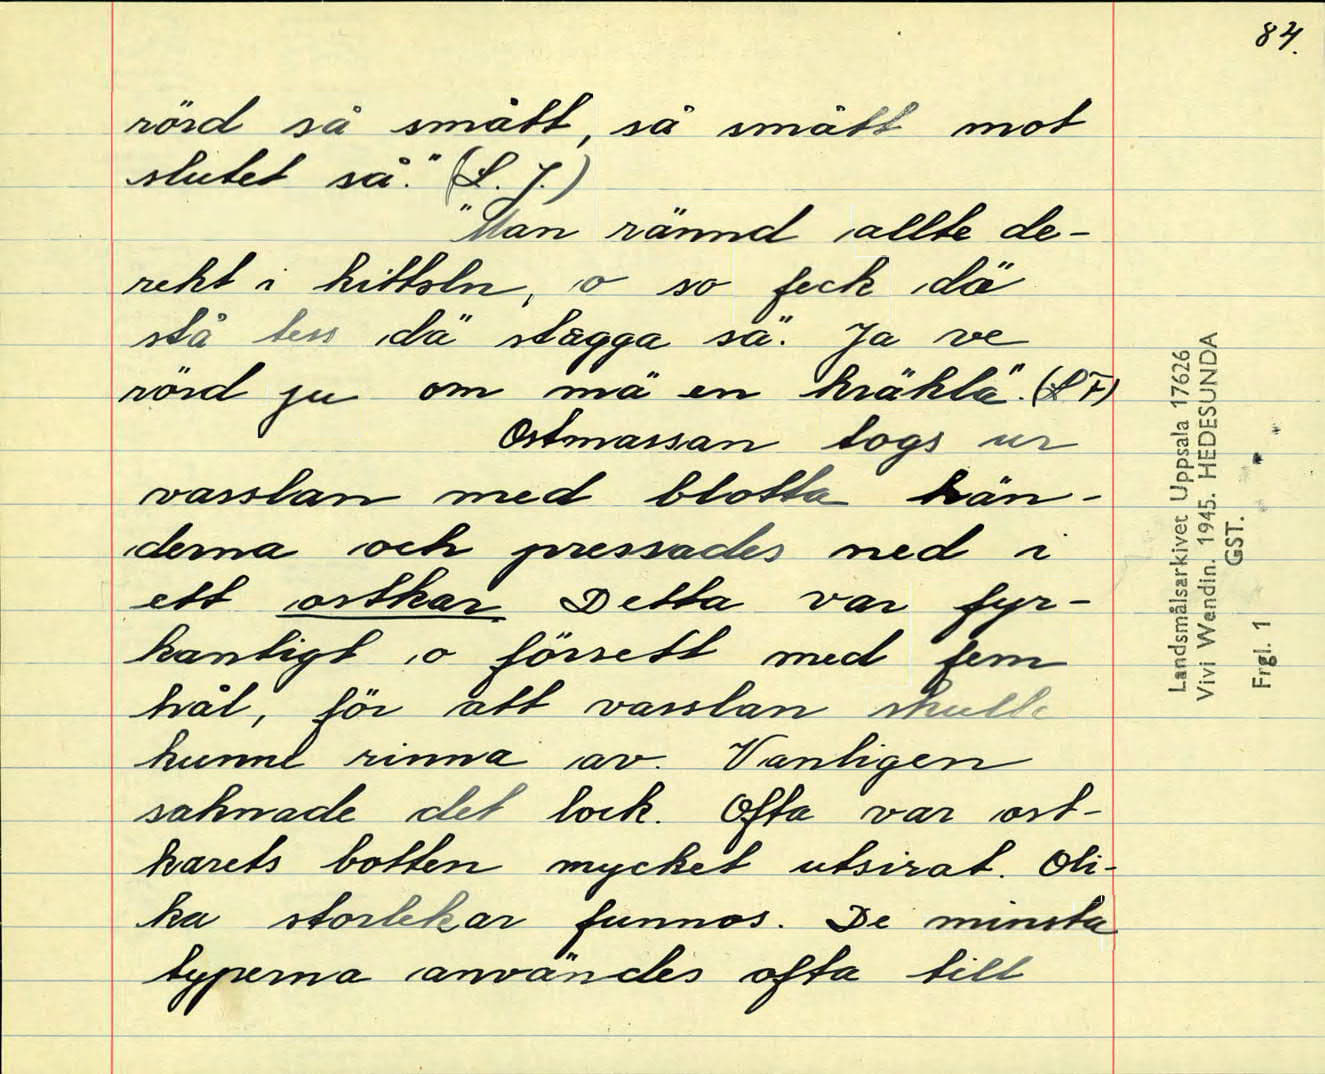 84.
rörd så smått, så smått mot
slutet så." (L. J.)
"Man rännd allte de-
rekt i kittsln, o so feck dä
stå tess dä stagga sä". Ja ve
rörd ju om mä en kräkla". (L F)
Ostmassan togs ur
vasslan med blotta hän-
derna och pressades ned i
ett ostkar. Detta var fyr-
kantigt o försett med fem
hål, för att vasslan skulle
kunne rinna av. Vanligen
saknade det lock. Ofta var ost-
karets botten mycket utsirat. Oli-
ka storlekar funnos. De minsta
typerna användes ofta till
Landsmålsarkivet Uppsala 17626
Vivi Wendin. 1945. HEDESUNDA
GST.
Frgl. 1